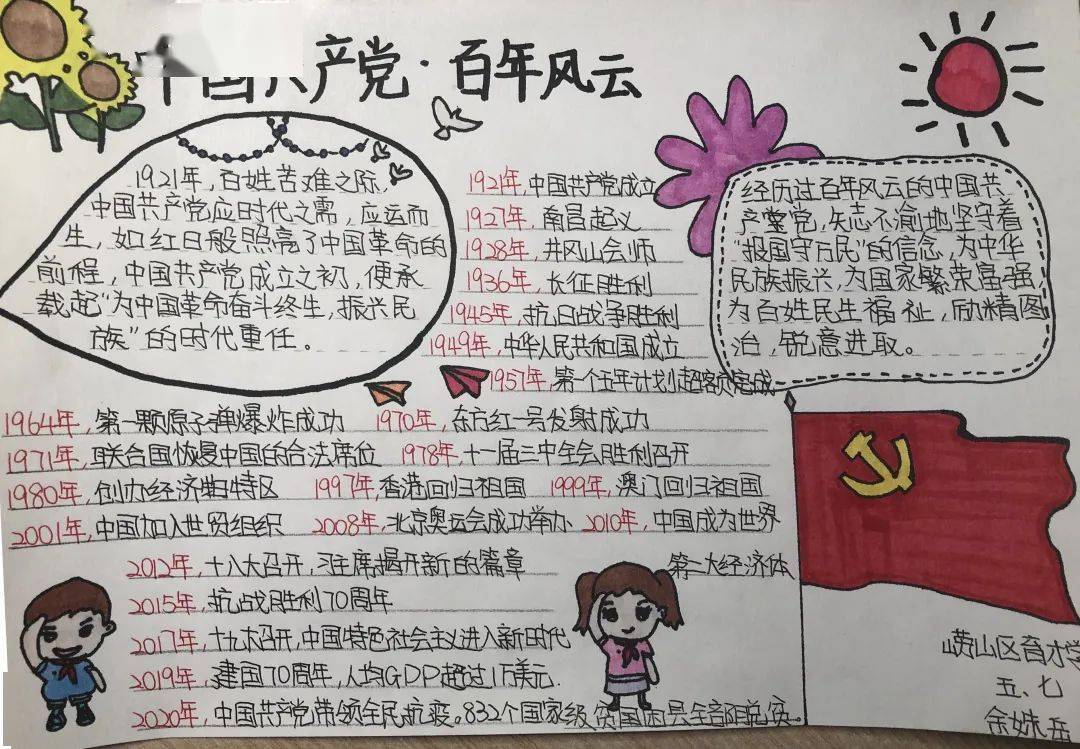 中国共产党·百年风云
1921年,百姓苦难之际,
中国共产党应时代之需,应运而
生,如红日般照亮了中国革命的
前程,中国共产党成立之初,便承
载起“为中国革命奋斗终生,振兴民
族”的时代重任。
1921年,中国共产党成立
1927年,南昌起义
1928年,井冈山会师
1936年,长征胜利
1945年,抗日战争胜利
1949年,中华人民共和国成立
1957年,第一个五年计划超额完成
经历过百年风云的中国共
产党,矢志不渝地坚守着
“报国守万民”的信念,为中华
民族振兴,为国家繁荣富强,
为百姓民生福祉,励精图
治,锐意进取。
1964年,第一颗原子弹爆炸成功 1970年,东方红一号发射成功
1971年,联合国恢复中国的合法席位 1978年,十一届三中全会胜利召开
1980年,创办经济特区 1997年,香港回归祖国 1999年,澳门回归祖国
2001年,中国加入世贸组织 2008年,北京奥运会成功举办 2010年,中国成为世界
第二大经济体
2012年,十八大召开,习主席揭开新的篇章
2015年,抗战胜利70周年
2017年,十九大召开,中国特色社会主义进入新时代
2019年,建国70周年,人均GDP超过1万美元.
2020年,中国共产党带领全民抗疫。832个国家级贫困县全部脱贫。
崂山区育才学
五、七
余姝岳